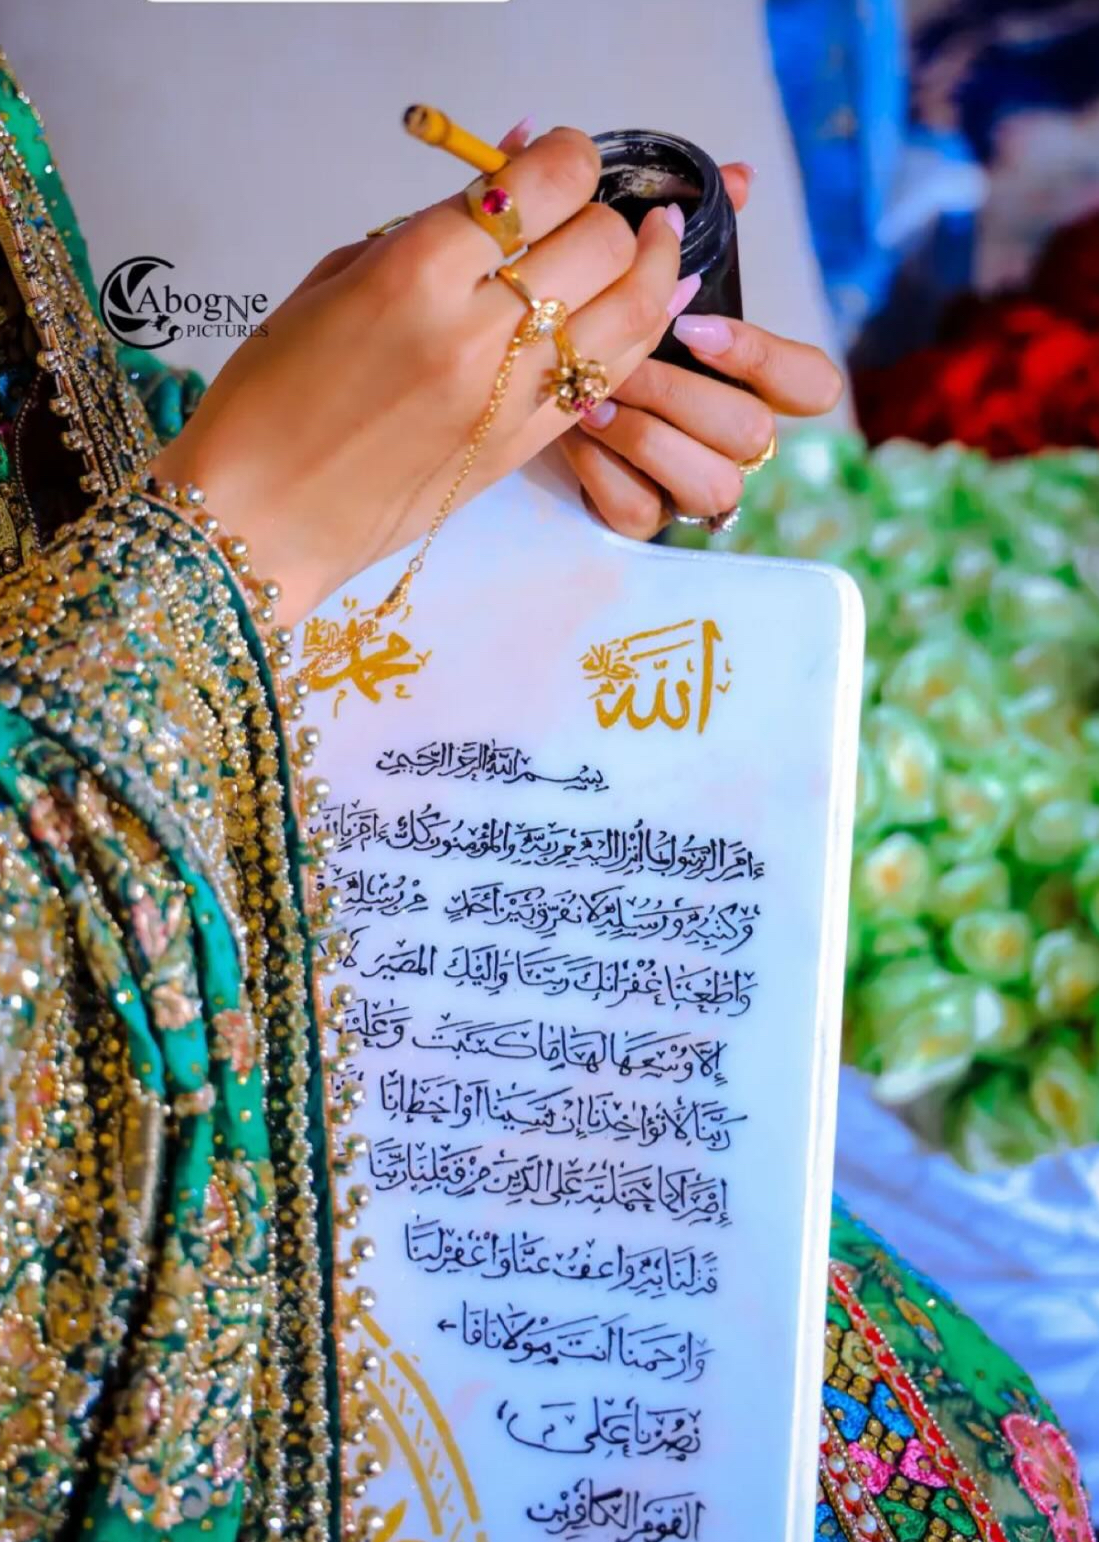 AbogNe
PICTURES
محمد
الله جل جلاله
بسم الله الرحمن الرحيم
ءامن الرسول بما أنزل إليه من ربه والمؤمنون كل ءامن بالله
وكتبه ورسله لا نفرق بين أحد من رسله
وأطعنا غفرانك ربنا وإليك المصير لا
إلا وسعها لها ما كسبت وعليها
ربنا لا تؤاخذنا إن نسينا أو اخطانا
إصرا كما حملته على الذين من قبلنا ربنا
لنا به واعف عنا واغفر لنا
وارحمنا أنت مولانا فا
نصرنا على
القوم الكافرين